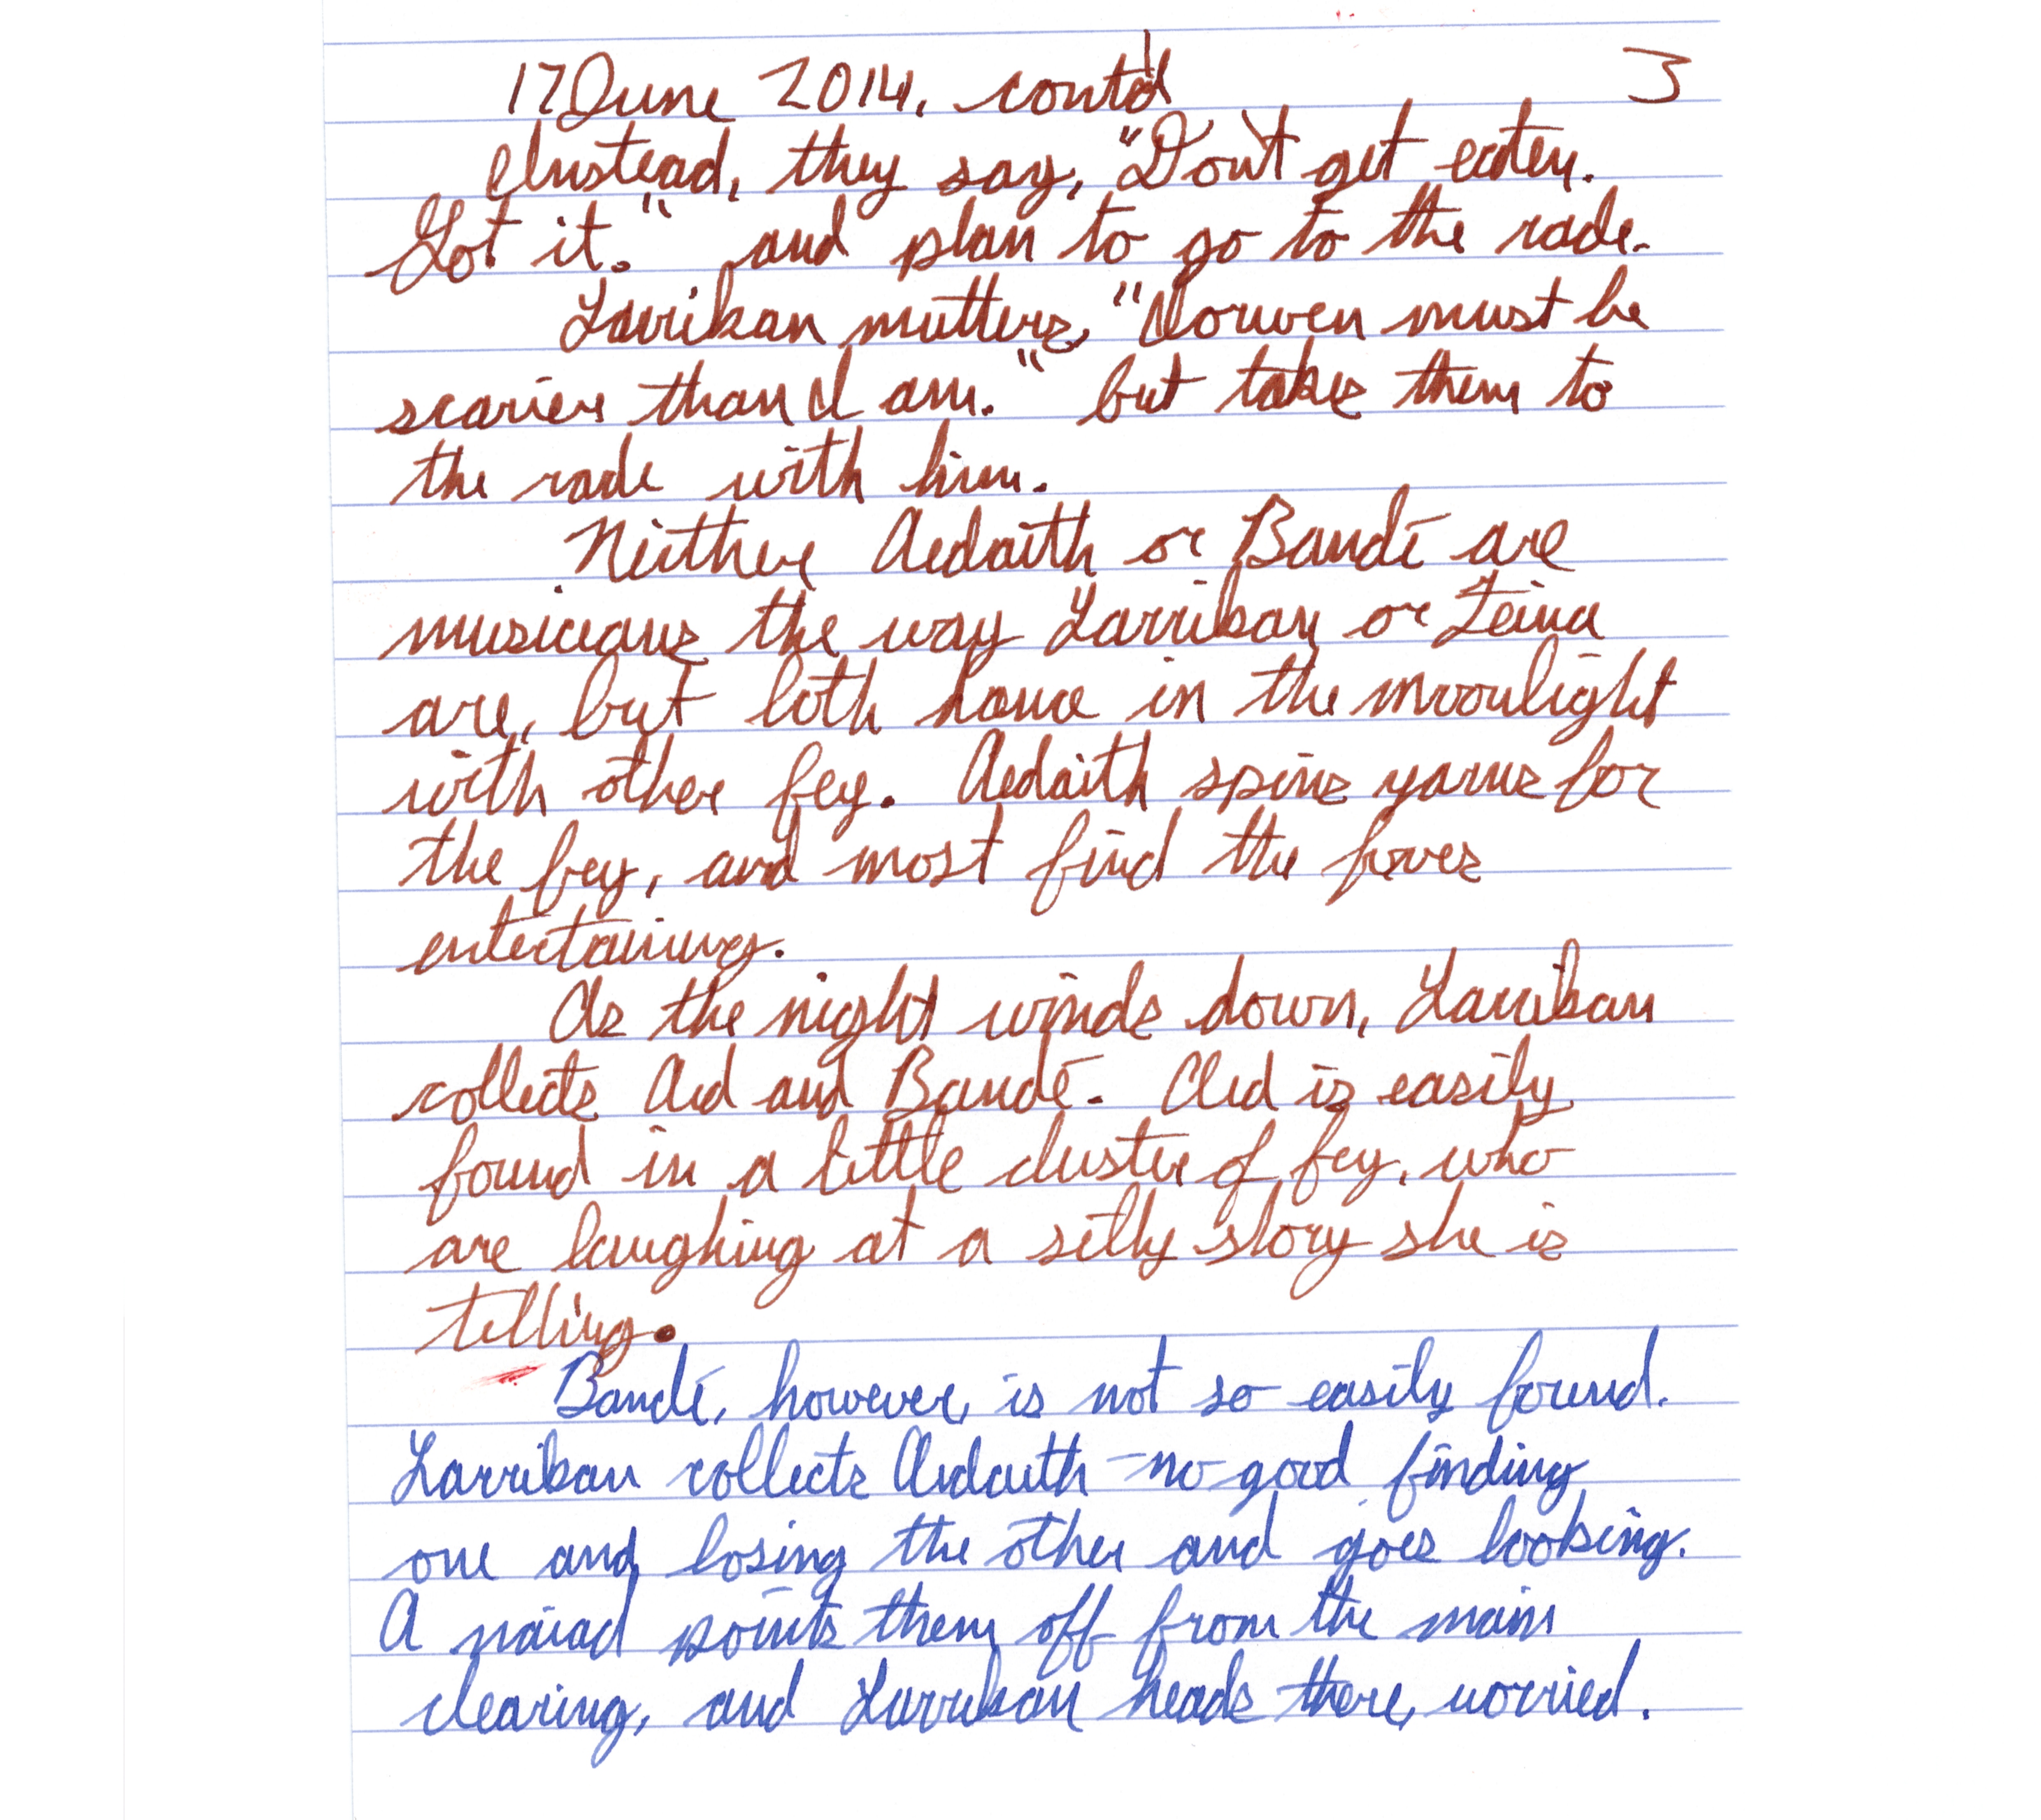 17 June 2014, cont'd 3
Instead, they say, "Don't get eaten.
Got it." and plan to go to the rade.
Larrikan mutters, "Norwen must be
scarier than I am." but takes them to
the rade with him.
Neither Aedaith or Bandé are
musicians the way Larrikan or Zeina
are, but both dance in the moonlight
with other fey. Aedaith spins yarns for
the fey, and most find the
entertaining.
As the night winds down, Larrikan
collects Aed and Bandé. Aed is easily
found in a little cluster of fey, who
are laughing at a silly story she is
telling.
Bandé, however, is not so easily found.
Larrikan collects Aedaith - no good finding
one and losing the other and goes looking.
A naiad points them off from the main
clearing, and Larrikan heads there, worried.